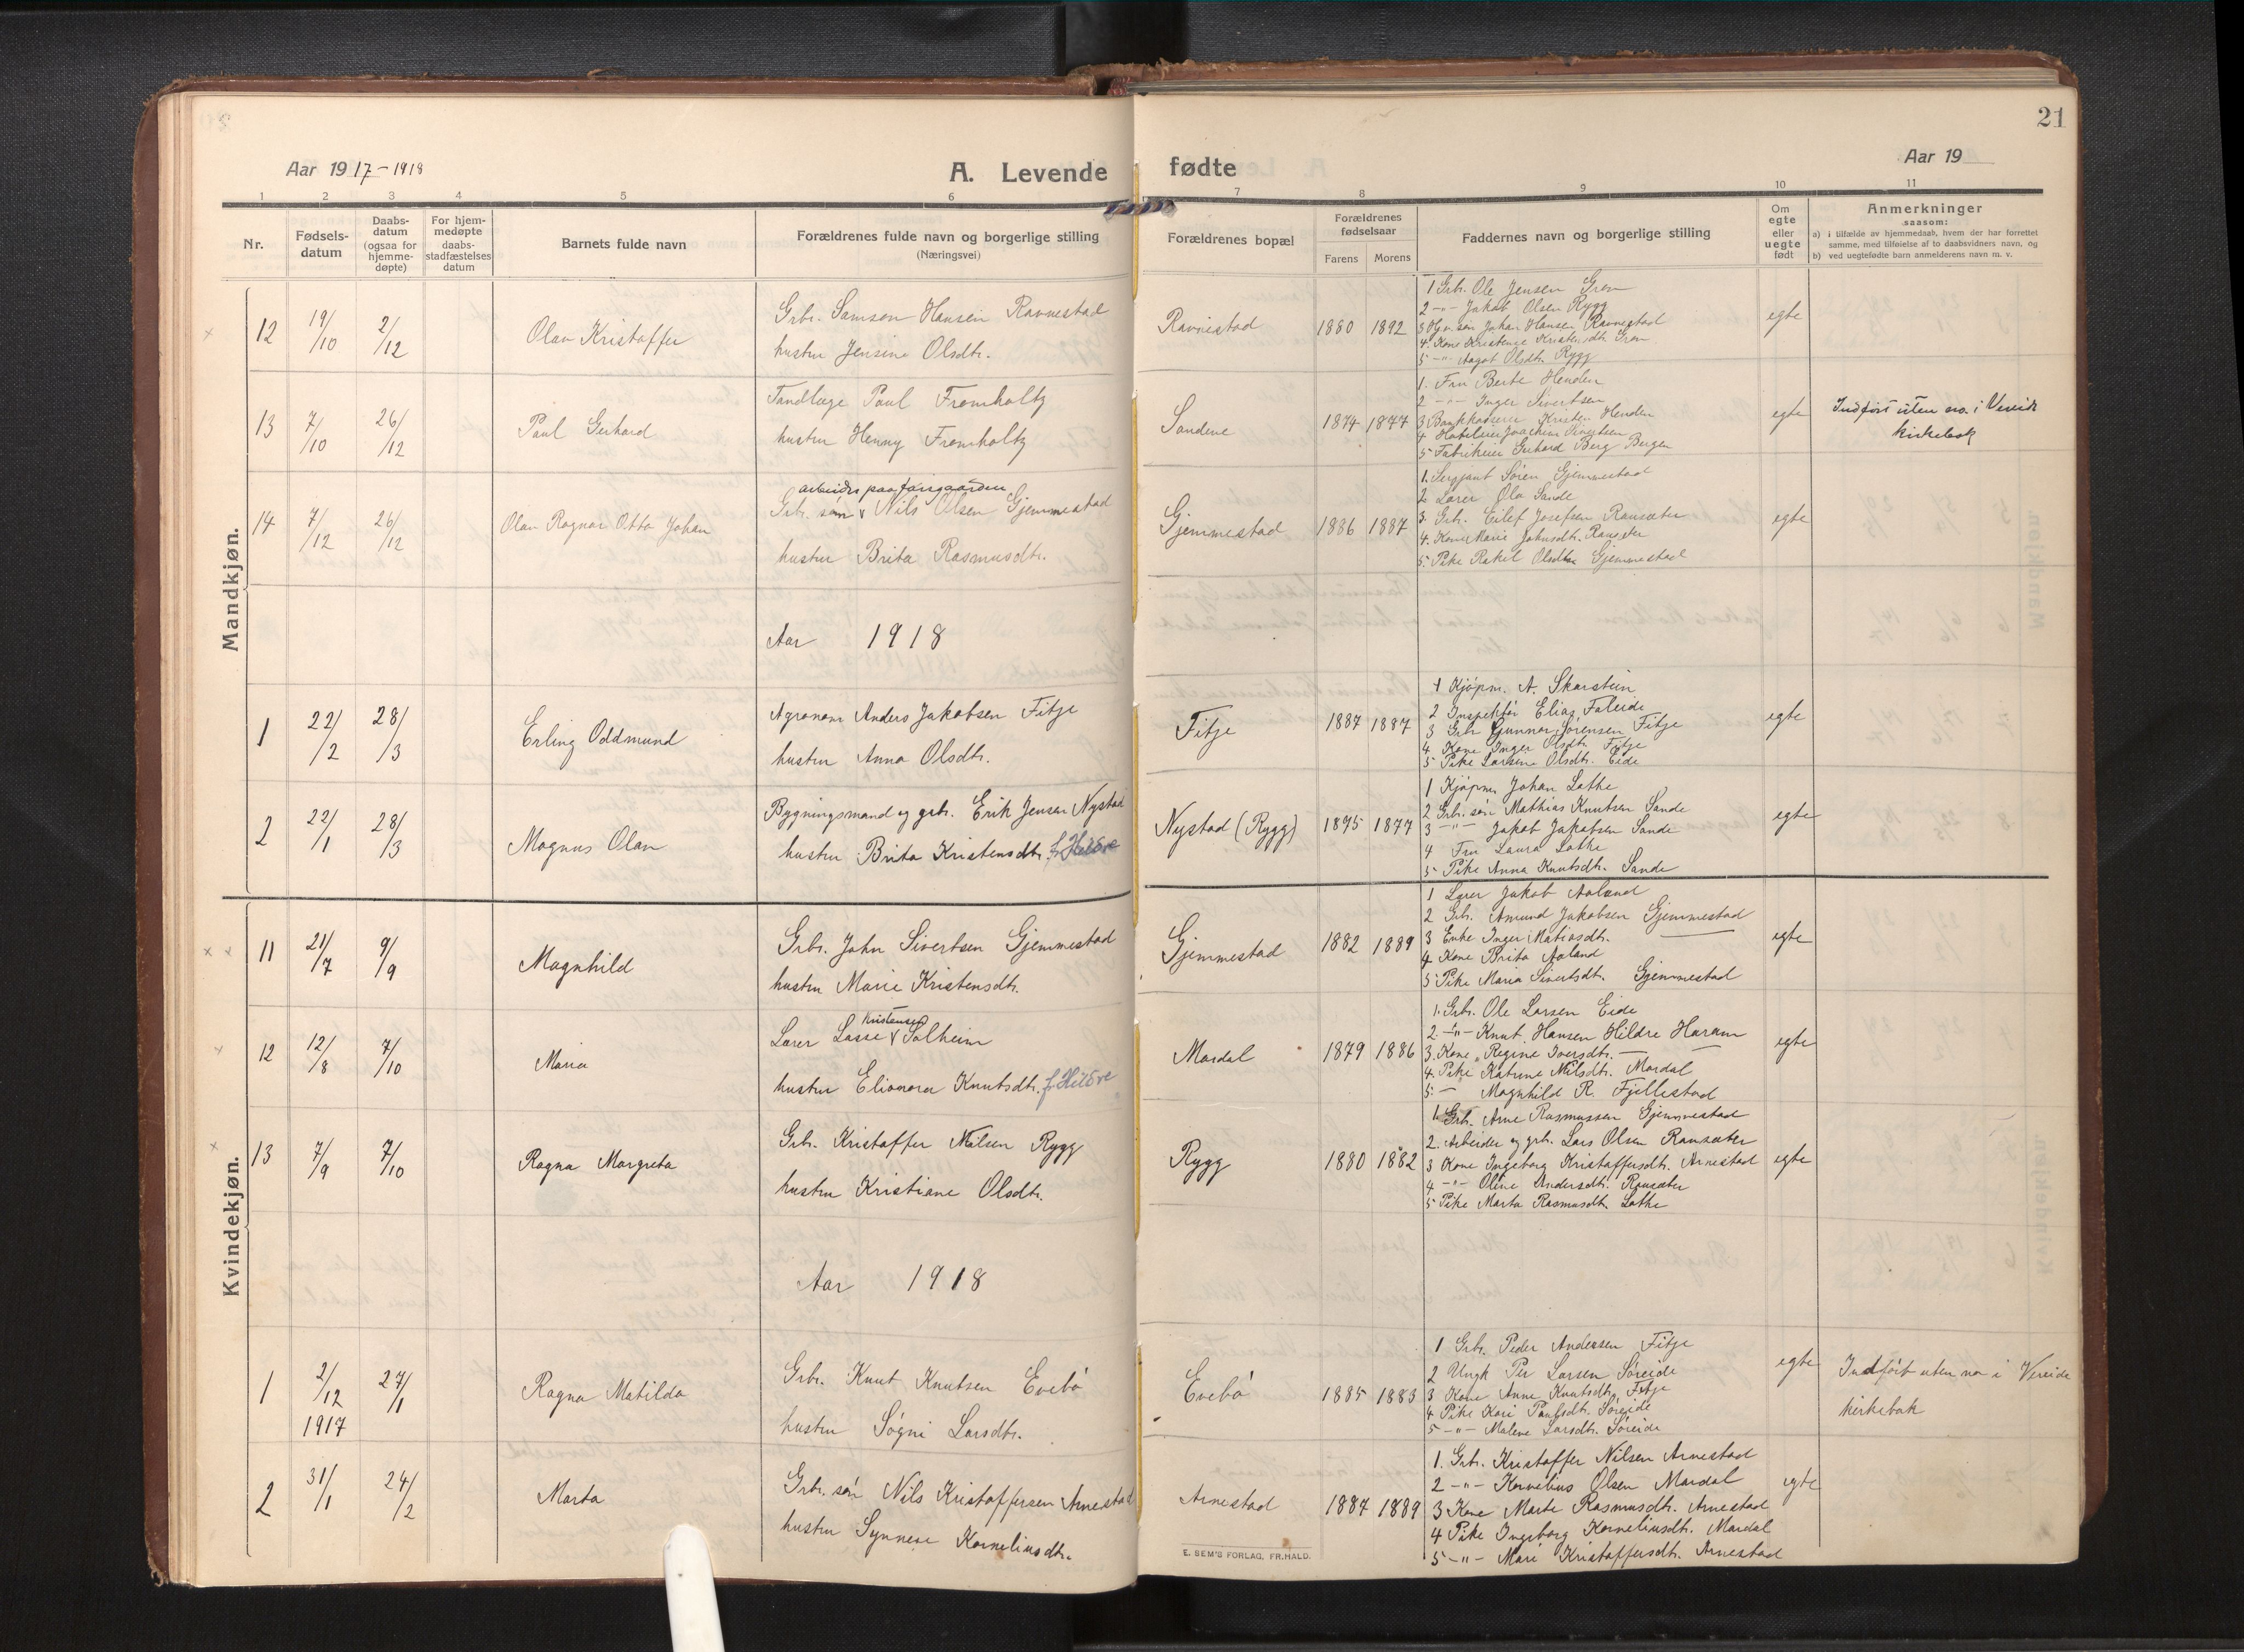 21
Aar 1917-1918
A. Levende fødte
Aar 19
1 2 3 4 5 6 7 8 9 10 11
Nr.
Fødsels-
datum
Daabs-
datum
(ogsaa for
hjemme-
døpte)
For hjem-
medøpte
daabs-
stadfæstelses
datum
Barnets fulde navn
Forældrenes fulde navn og borgerlige stilling
(Næringsvei)
Forældrenes bopæl
Forældrenes
fødselsaar
Farens Morens
Faddernes navn og borgerlige stilling
Om
egte
eller
uegte
født
Anmerkninger
saasom:
a) i tilfælde av hjemmedaab, hvem der har forrettet
samme, med tilføielse af to daabsvidners navn, og
b) ved uegtefødte barn anmelderens navn m. v.
Mandkjøn.
12 19/10 2/12 Olav Kristoffer
Grbr. Samson Hansen Ravnestad
hustru Jensine Olsdtr.
Ravnestad 1880 1892
1 Grb. Ole Jensen Grov
2 -"- Jakob Olsen Rygg
3 søn Johan Hansen Ravnestad
4. Kone Kristensdtr.
5 -"- Aagot Olsdtr. Rygg
egte
13 7/10 26/12 Paul Gerhard
Tandlæge Paul Fromholtz
hustru Henny Fromholtz
Sandene 1874 1877
1. Fru Berte Henden
2 -"- Inger Sivertsen
3 Bankkasserer Kristen Henden
4 Joachim Sivertsen
5 Gerhard Berg Bergen
egte
Indført uten no. i Vereide
kirkebok
14 7/12 26/12 Olav Ragnar Otto Johan
arbeider paa
Grb. søn v Nils Olsen Gjemmestad
hustru Brita Rasmusdtr.
Gjemmestad 1886 1887
1. Sergjant Søren Gjemmestad
2 Lærer Ola Sande
3. Grb. Eilef Josefsen Ransæter
4. Kone Marie Johnsdtr. Ransæter
5. Pike Rakel Olsdtr Gjemmestad
egte
Aar 1918
1 22/2 28/3 Erling Oddmund
Agronom Anders Jakobsen Fitje
hustru Anna Olsdtr.
Fitje 1887 1887
1 Kjøpm. A. Skarstein
2 Inspektør Elias Faleide
3 Grb Gunnar Sørensen Fitje
4 Kone Inger Olsdtr. Fitje
5 Pike Larsine Olsdtr. Eide
egte
2 22/1 28/3 Magnus Olav
Bygningsmand og grb. Erik Jensen Nystad
hustru Brita Kristensdtr. f. Hildre
Nystad (Rygg) 1895 1877
1 Kjøpm Johan Lothe
2 Grb. søn Mathias Knutsen Sande
3 -"- Jakob Jakobsen Sande
4 Fru Laura Lothe
5 Pike Anna Knutsdtr. Sande
egte
Kvindekjøn.
11 21/7 9/9 Magnhild
Grbr. John Sivertsen Gjemmestad
hustru Marie Kristensdtr.
Gjemmestad 1882 1889
1 Lærer Jakob Aaland
2 Grb. Amund Jakobsen Gjemmestad
3 Enke Inger Matiasdtr.
4 Kone Brita Aaland
5 Pike Maria Sivertsdtr. Gjemmestad
egte
12 12/8 7/10 Maria
Kristensen
Lærer Lasse v Solheim
hustru Elionora Knutsdtr. f. Hildre
Mardal 1879 1886
1. Grb. Ole Larsen Eide
2. -"- Knut Hansen Hildre Haram
3. Kone Regine Iversdtr. —
4. Pike Katrine Nilsdtr. Mardal
5. — Magnhild R. Fjellestad
egte
13 7/9 7/10 Ragna Margreta
Grb. Kristoffer Nilsen Rygg
hustru Kristiane Olsdtr.
Rygg 1880 1882
1. Grb. Arne Rasmussen Gjemmestad
2. Arbeider og grb. Lars Olsen Ransæter
3 Kone Ingeborg Kristoffersdtr. Arnestad
4 -"- Oline Andersdtr. Ransæter
5 Pike Marta Rasmusdtr. Lothe
egte
Aar 1918
1 2/12 1917 27/1 Ragna Matilda
Grbr. Knut Knutsen Evebø
hustru Søgni Larsdtr.
Evebø 1885 1883
1 Grb. Peder Andersen Fitje
2 Ungk Per Larsen Søreide
3 Kone Anne Knutsdtr. Fitje
4 Pike Kari Paulsdtr. Søreide
5 -"- Malene Larsdtr. Søreide
egte
Indført uten no i Vereide
kirkebok
2 31/1 24/2 Marta
Grbr. søn Nils Kristoffersen Arnestad
hustru Synneve Korneliusdtr.
Arnestad 1887 1889
1. Grb. Kristoffer Nilsen Arnestad
2 -"- Kornelius Olsen Mardal
3 Kone Marte Rasmusdtr. Arnestad
4 Pike Ingeborg Korneliusdtr. Mardal
5 -"- Mari Kristoffersdtr. Arnestad
egte
E. SEM'S FORLAG, FR.HALD.